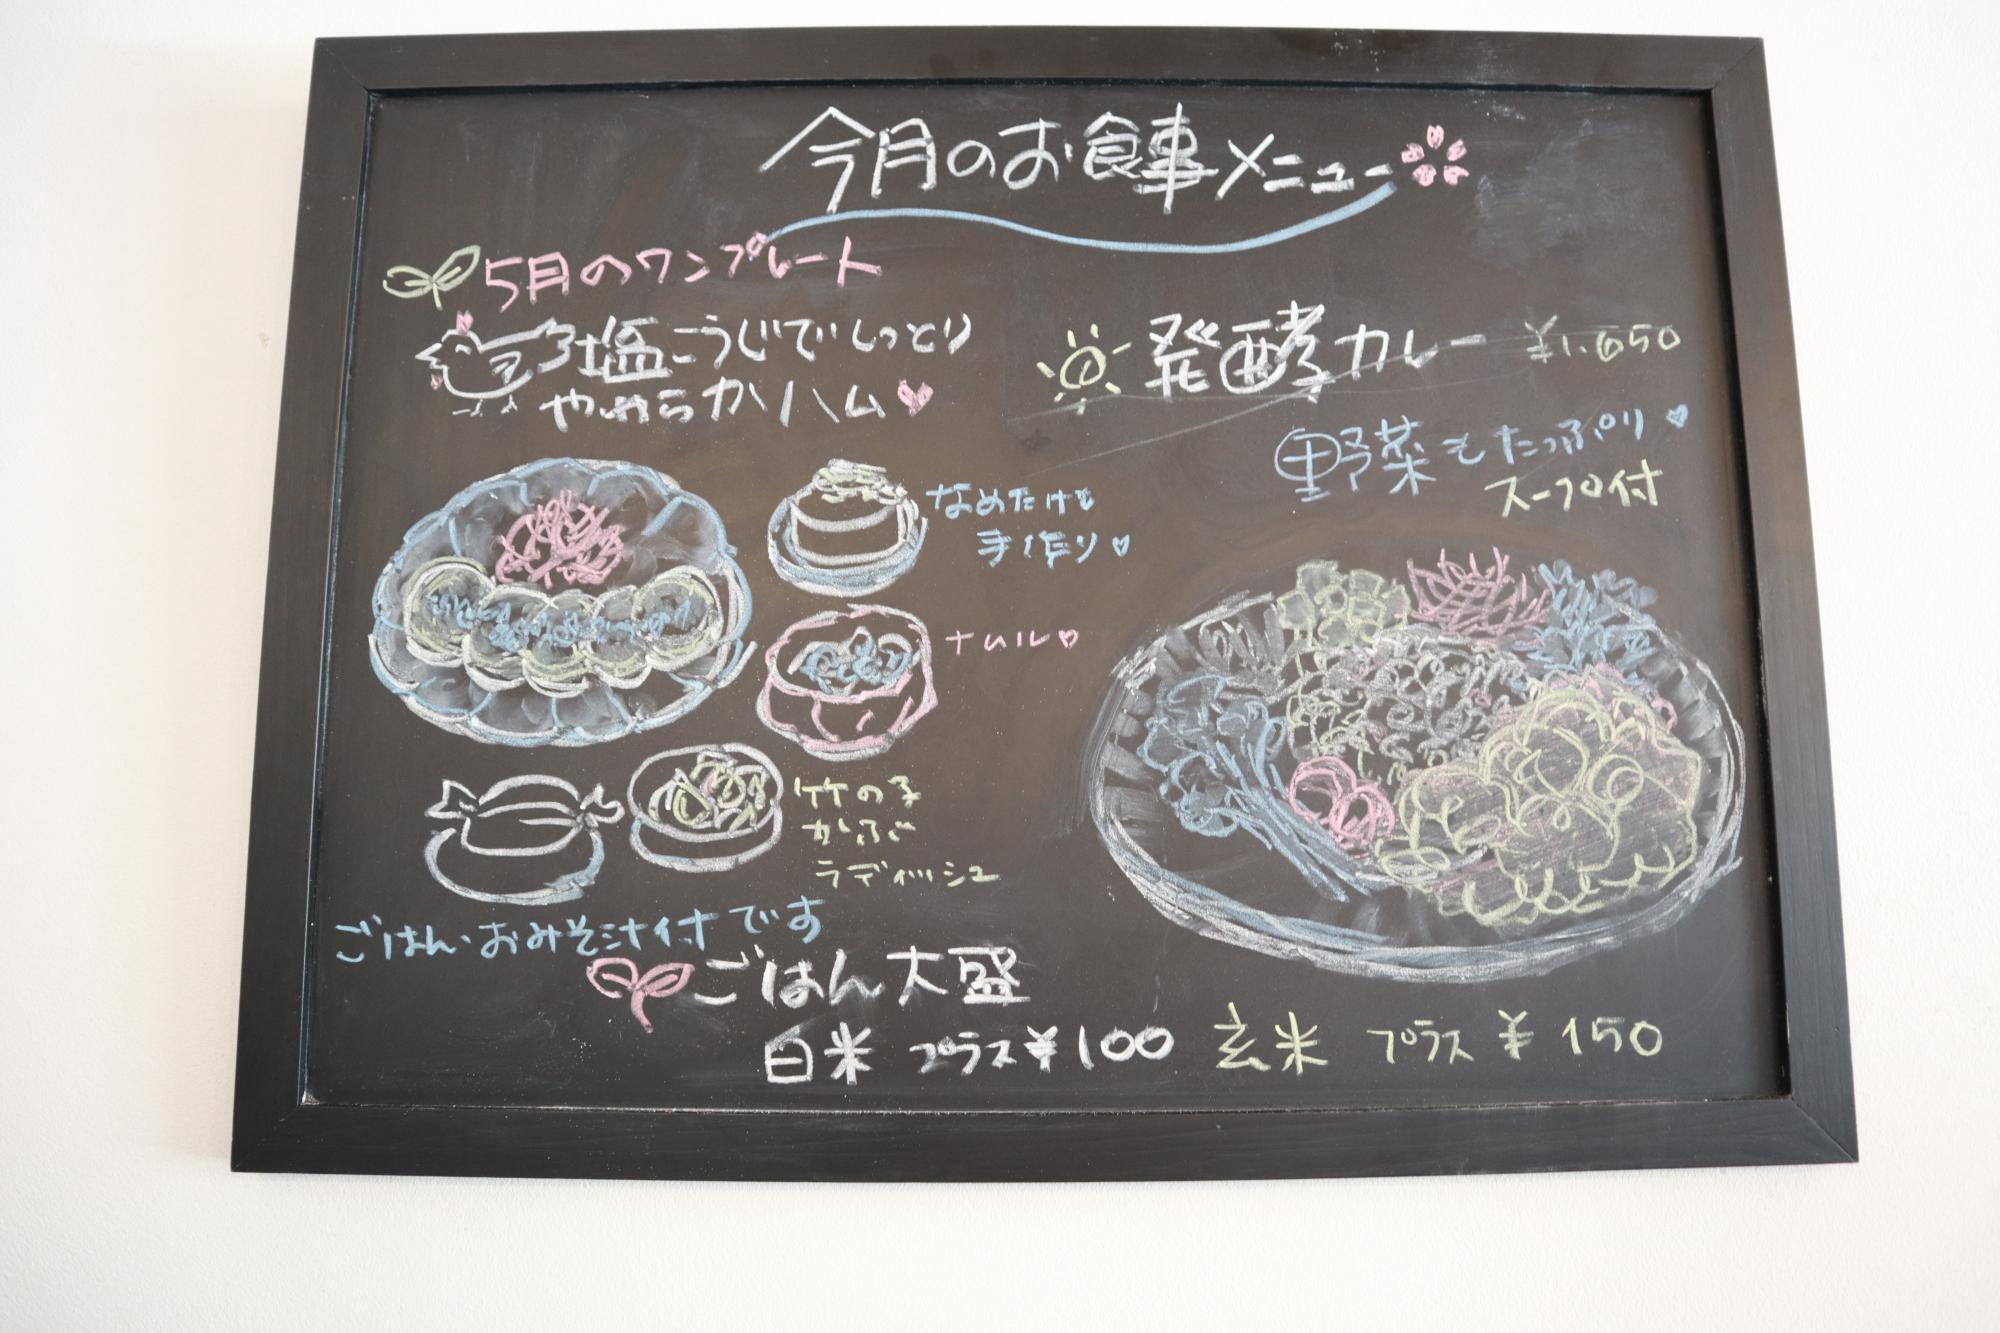 今月のお食事メニュー
5月のワンプレート
塩こうじでしっとり
やわらかハム
なめたけも
手作り
ナムル
竹の子
かぶ
ラディッシュ
ごはん・おみそ汁付です
発酵カレー ¥1,650
野菜もたっぷり
スープ付
ごはん大盛
白米 プラス¥100 玄米 プラス¥150